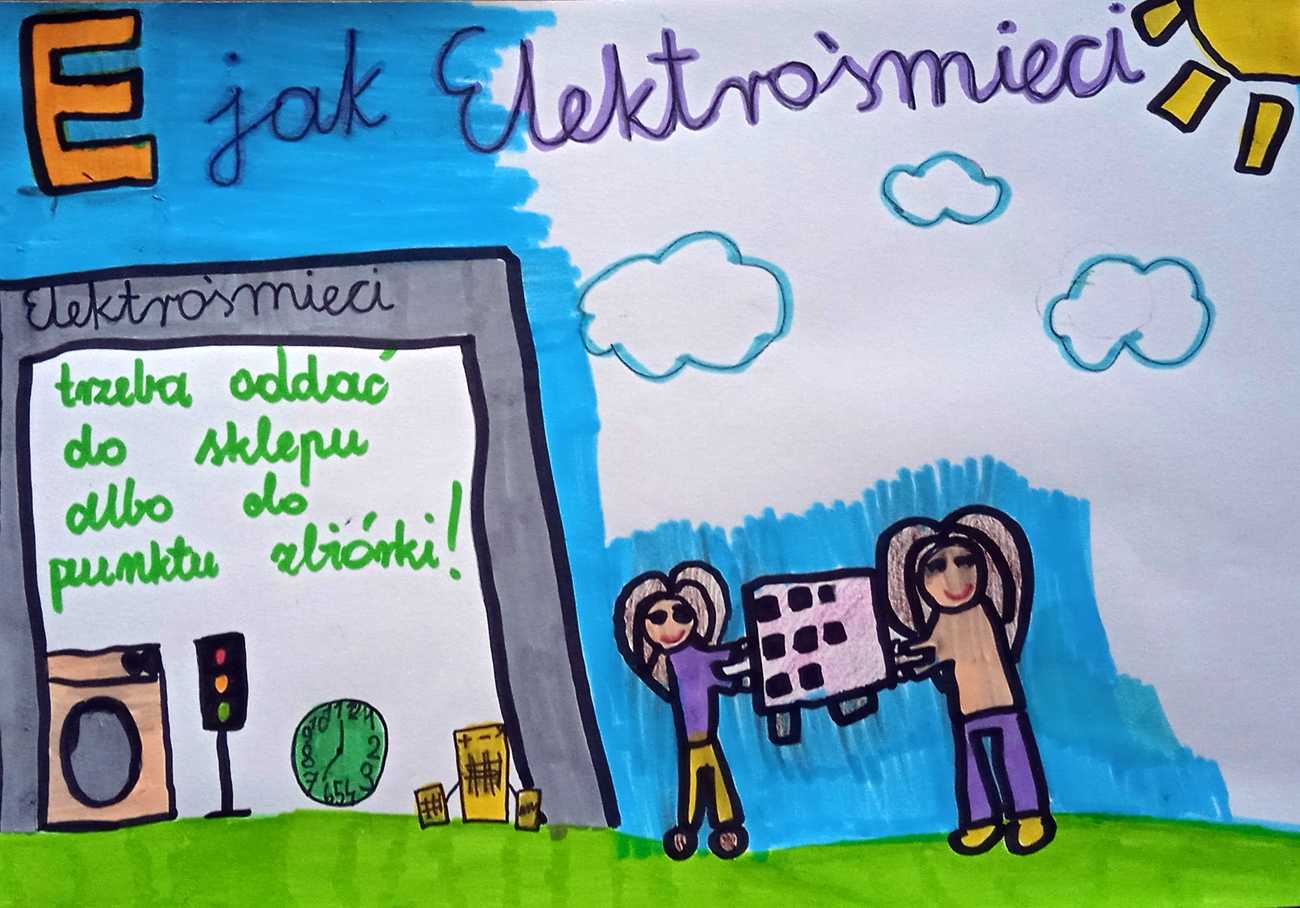 E jak Elektrośmieci
Elektrośmieci
trzeba oddać
do sklepu
albo do
punktu zbiórki!